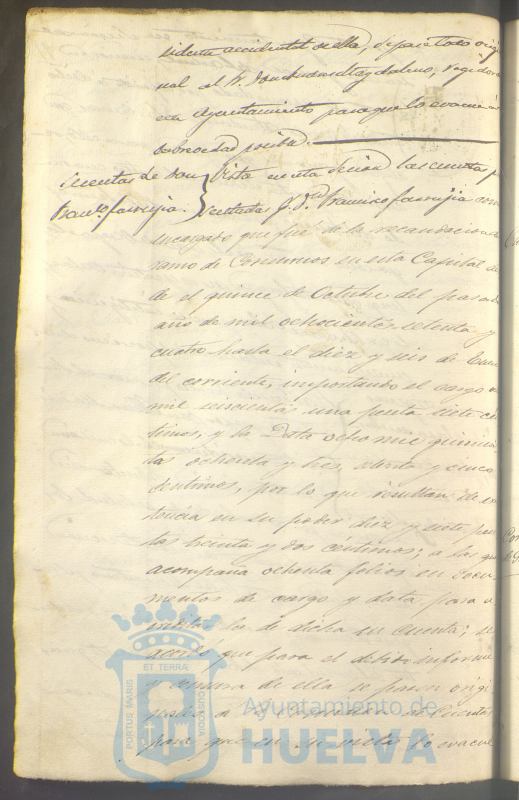 sidente accidental de ella, se pase todo origi
nal al Sr. Don, regidor de
este Ayuntamiento para que lo evacue á
la brevedad posible.
Cuentas de Don
Franco. farrujia.
Vista en esta sesion las cuentas pre
sentadas p. Dn. Francisco farrujia como
encargado que fué de la recaudacion del
ramo de Consumos en esta Capital des
de el quince de Octubre del pasado
año de mil ochocientos setenta y
cuatro hasta el diez y seis de Enero
del corriente, importando el cargo
mil seiscientas una peseta siete cen
timos, y la Data ocho mil quinien
tas ochenta y tres, setenta y cinco
centimos, por lo que resultan de ex
tencia en su poder diez y siete pese
tas treinta y dos céntimos; a las que
acompaña ochenta folios en docu
mentos de cargo y data para a
creditar los de dicha su cuenta; se
acordó que para el debido informe
y censura de ella se pasen origi
nales á la Comision de Cuentas
para que en su vista lo evacue
PORTUS MARIS
ET TERRÆ
CUSTODIA
Ayuntamiento de
HUELVA